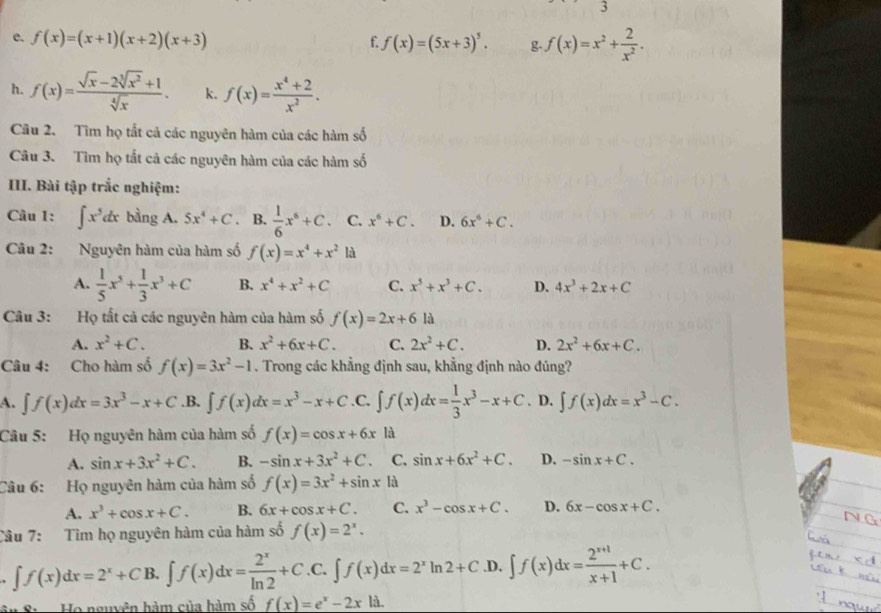 3
e. f(x)=(x+1)(x+2)(x+3) f. f(x)=(5x+3)⁵. g. f(x)=x²+2/x².
h. f(x)=(√x−2∛(x²)+1)/∜x. k. f(x)=(x⁴+2)/x².
Câu 2. Tìm họ tất cả các nguyên hàm của các hàm số
Câu 3. Tìm họ tất cả các nguyên hàm của các hàm số
III. Bài tập trắc nghiệm:
Câu 1: ∫x⁵dx bằng A. 5x⁴+C. B. 1/6 x⁶+C. C. x⁶+C. D. 6x⁶+C.
Câu 2: Nguyên hàm của hàm số f(x)=x⁴+x² là
A. 1/5 x⁵+1/3 x³+C B. x⁴+x²+C C. x⁵+x³+C. D. 4x³+2x+C
Câu 3: Họ tất cả các nguyên hàm của hàm số f(x)=2x+6 là
A. x²+C. B. x²+6x+C. C. 2x²+C. D. 2x²+6x+C.
Câu 4: Cho hàm số f(x)=3x²−1. Trong các khẳng định sau, khẳng định nào đúng?
A. ∫f(x)dx=3x³−x+C .B. ∫f(x)dx=x³−x+C .C. ∫f(x)dx=1/3 x³−x+C. D. ∫f(x)dx=x³−C.
Câu 5: Họ nguyên hàm của hàm số f(x)=cos x+6x là
A. sin x+3x²+C. B. −sin x+3x²+C. C. sin x+6x²+C. D. −sin x+C.
Câu 6: Họ nguyên hàm của hàm số f(x)=3x²+sin x là
A. x³+cos x+C. B. 6x+cos x+C. C. x³−cos x+C. D. 6x−cos x+C.
Câu 7: Tìm họ nguyên hàm của hàm số f(x)=2ˣ.
. ∫f(x)dx=2ˣ+C B. ∫f(x)dx=2ˣ/ln 2+C .C. ∫f(x)dx=2ˣ ln 2+C .D. ∫f(x)dx=2ˣ⁺¹/(x+1)+C.
Họ nguyên hàm của hàm số f(x)=eˣ−2x là.